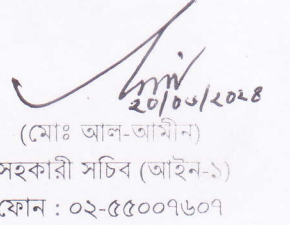 ২০/০৬/২০২৪
(মোঃ আল-আমীন)
সহকারী সচিব (আইন-১)
ফোন : ০২-৫৫০০৭৬০৭